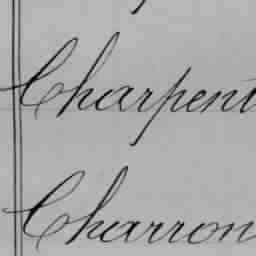 Charpent
Charron